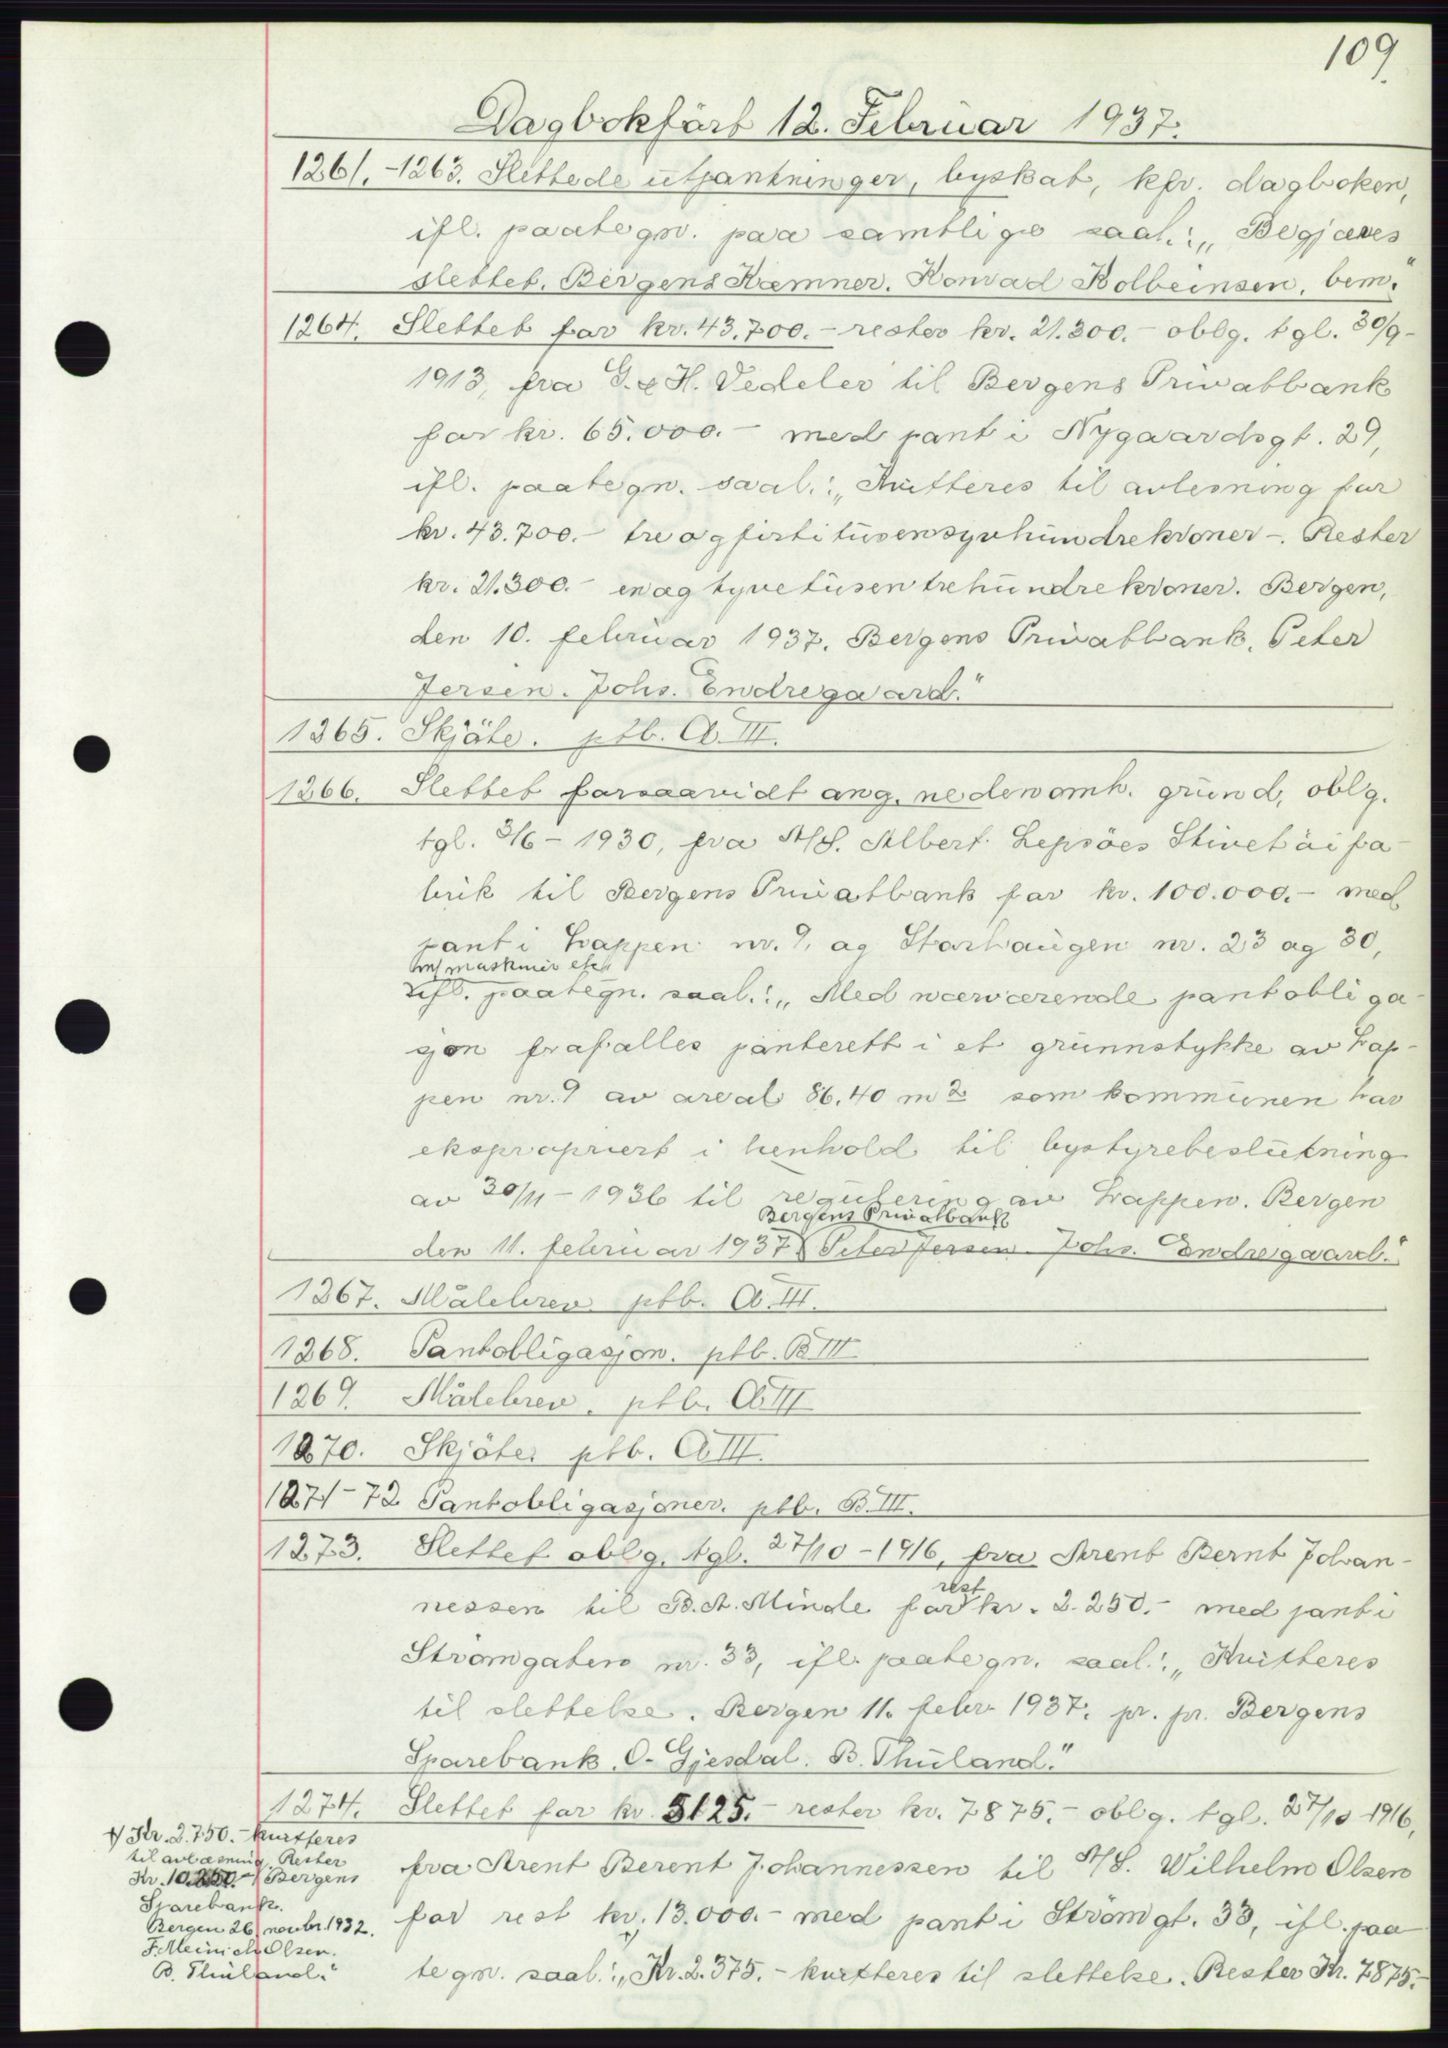 109.
Dagbokført 12. Februar 1937.
1261.-1263. Slettede utpantninger, byskat, kfr. dagboken,
ifl. paategn. paa samtlige saal.: „Begjæres
slettet. Bergens Kæmner. Konrad Kolbeinsen. bem."
1264. Slettet for kr. 43.700.- rester kr. 21.300.- oblg. tgl. 30/9-
1913, fra G. & H. Vedeler til Bergens Privatbank
for kr. 65.000.- med pant i Nygaardsgt. 29,
ifl. paategn. saal.: „Kvitteres til avlesning for
kr. 43.700.- treogførtitusensyvhundrekroner -. Rester
kr. 21.300.- enogtyvetusentrehundrekroner. Bergen,
den 10. februar 1937. Bergens Privatbank. Peter
Jersen. Johs. Endregaard."
1265. Skjøte. ptb. A.III.
1266. Slettet forsaavidt ang. nedenomh. grund, oblg.
tgl. 3/6-1930, fra A/S. Albert Lepsöes Stivetöifa-
brik til Bergens Privatbank for kr. 100.000.- med
pant i Lappen nr. 9, og Starhaugen nr. 23 og 30,
m/maskiner etc.
ifl. paategn. saal.: „Med nærværende pantobliga-
sjon frafalles panterett i et grunnstykke av Lap-
pen nr. 9 av areal 86.40 m2 som kommunen har
ekspropriert i henhold til bystyrebeslutning
av 30/11-1936 til regulering av Lappen. Bergen
Bergens Privatbank
den 11. februar 1937. Peter Jersen. Johs. Endregaard."
1267. Målebrev ptb. A.III.
1268. Pantobligasjon. ptb. B III
1269. Målebrev. ptb. A III
1270. Skjöter ptb. A III.
1271-72 Pantobligasjoner. ptb. B.III.
1273. Slettet oblg. tgl. 27/10-1916, fra Arent Bernt Johan-
rest
nessen til B. A. Minde for kr. 2.250.- med pant i
Strömgaten nr. 33, ifl. paategn. saal.: „Kvitteres
til slettelse. Bergen 11. febr 1937. pr. pr. Bergens
Sparebank. O. Gjesdal. B. Thuland."
1274. Slettet for kr. 5125.- rester kr. 7875.- oblg. tgl. 27/10-1916,
fra Arent Berent Johannessen til A/S. Wilhelm Olsen
for rest kr. 13.000.- med pant i Strömgt. 33, ifl. paa
tegn. saal.: „Kr. 2.375.- kvitteres til slettelse. Rester Kr. 7875.-
Kr. 2.750.- kvitteres
til avlæsning. Rester
Kr. 10.250.- Bergens
Sparebank.
Bergen 26. novbr. 1932.
F. Meinich Olsen.
B. Thuland."